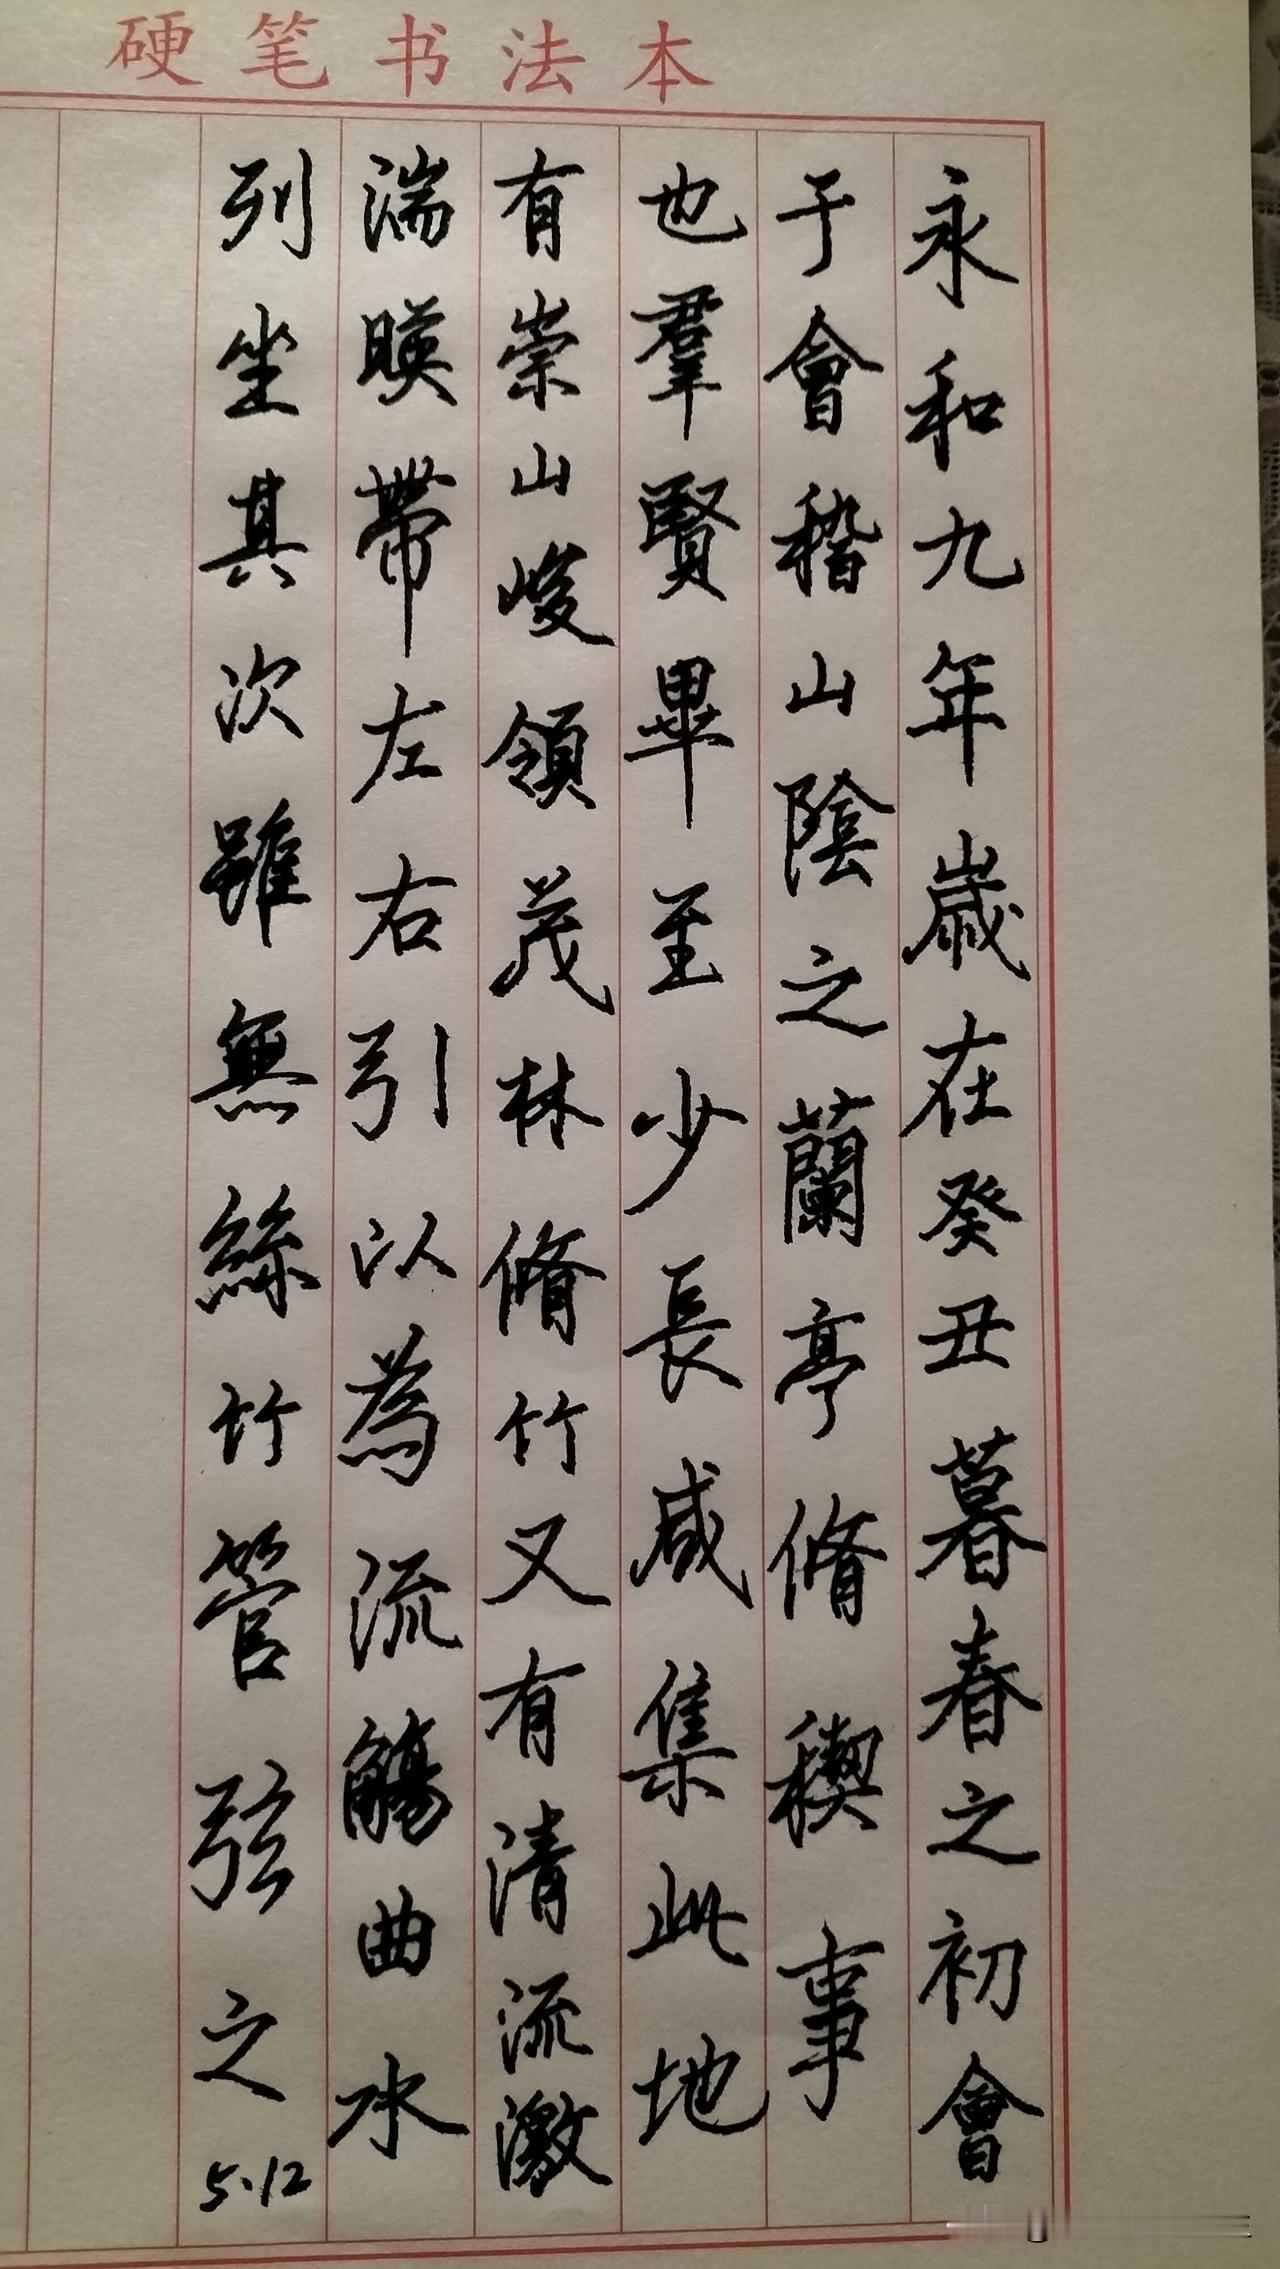 硬笔书法本
永和九年歲在癸丑暮春之初會
于會稽山陰之蘭亭脩稧事
也羣賢畢至少長咸集此地
有崇山峻領茂林脩竹又有清流激
湍暎帶左右引以為流觴曲水
列坐其次雖無絲竹管弦之
5.12